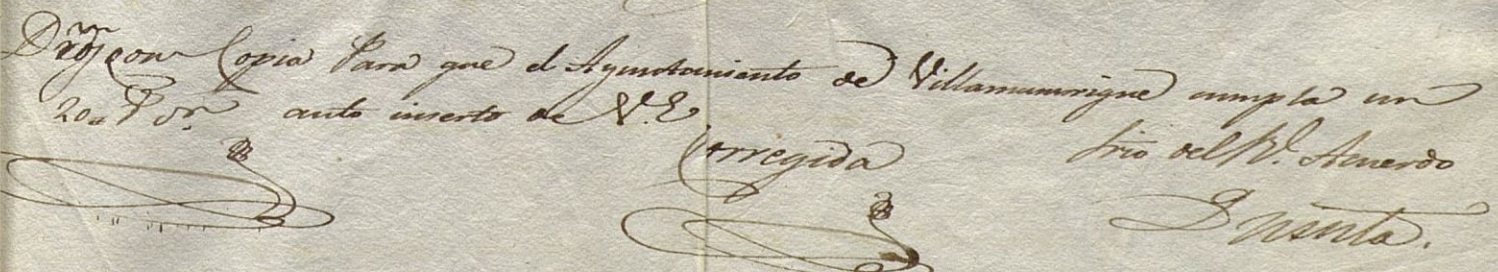 Dros con Copia Para que el Ayuntamiento de Villamumrique cumpla un
20 auto inserto de V. E.
Corregida
Srio del Rl. Acuerdo